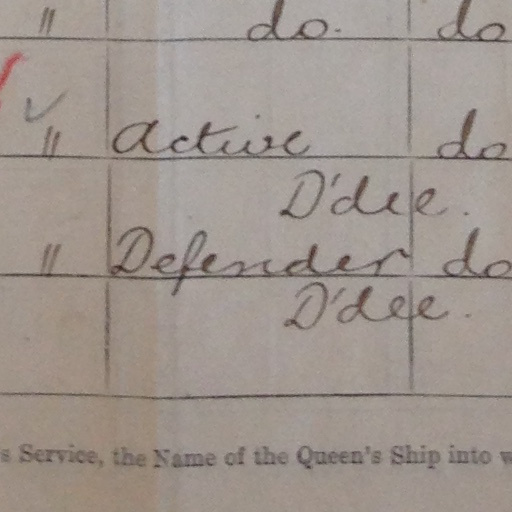 " do. do
" Active do
D'dee.
" Defender do
D'dee.
s Service, the Name of the Queen's Ship into w